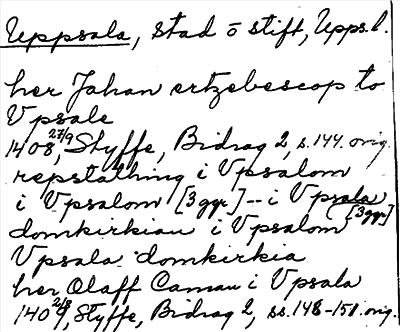 Uppsala, stad o stift, Upps. l.
her Johan ertzebescop to
Vpsale
1408 27/9, Styffe, Bidrag 2, s. 144. orig.
repstathing i Vpsalom
i Vpsalom [3 ggr] -- i Vpsala [3 ggr]
domkirkian i Vpsalom
Vpsala domkirkia
her Olaff i Vpsala
1409 2/8, Styffe, Bidrag 2, ss. 148-151. orig.